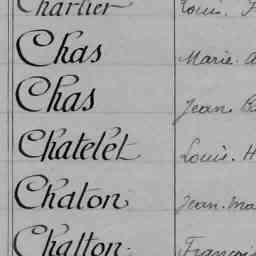 Charlier Louis. F
Chas Marie. a
Chas Jean.
Chatelet Louis. H
Chaton Jean. Ma
Chatton. Françoi